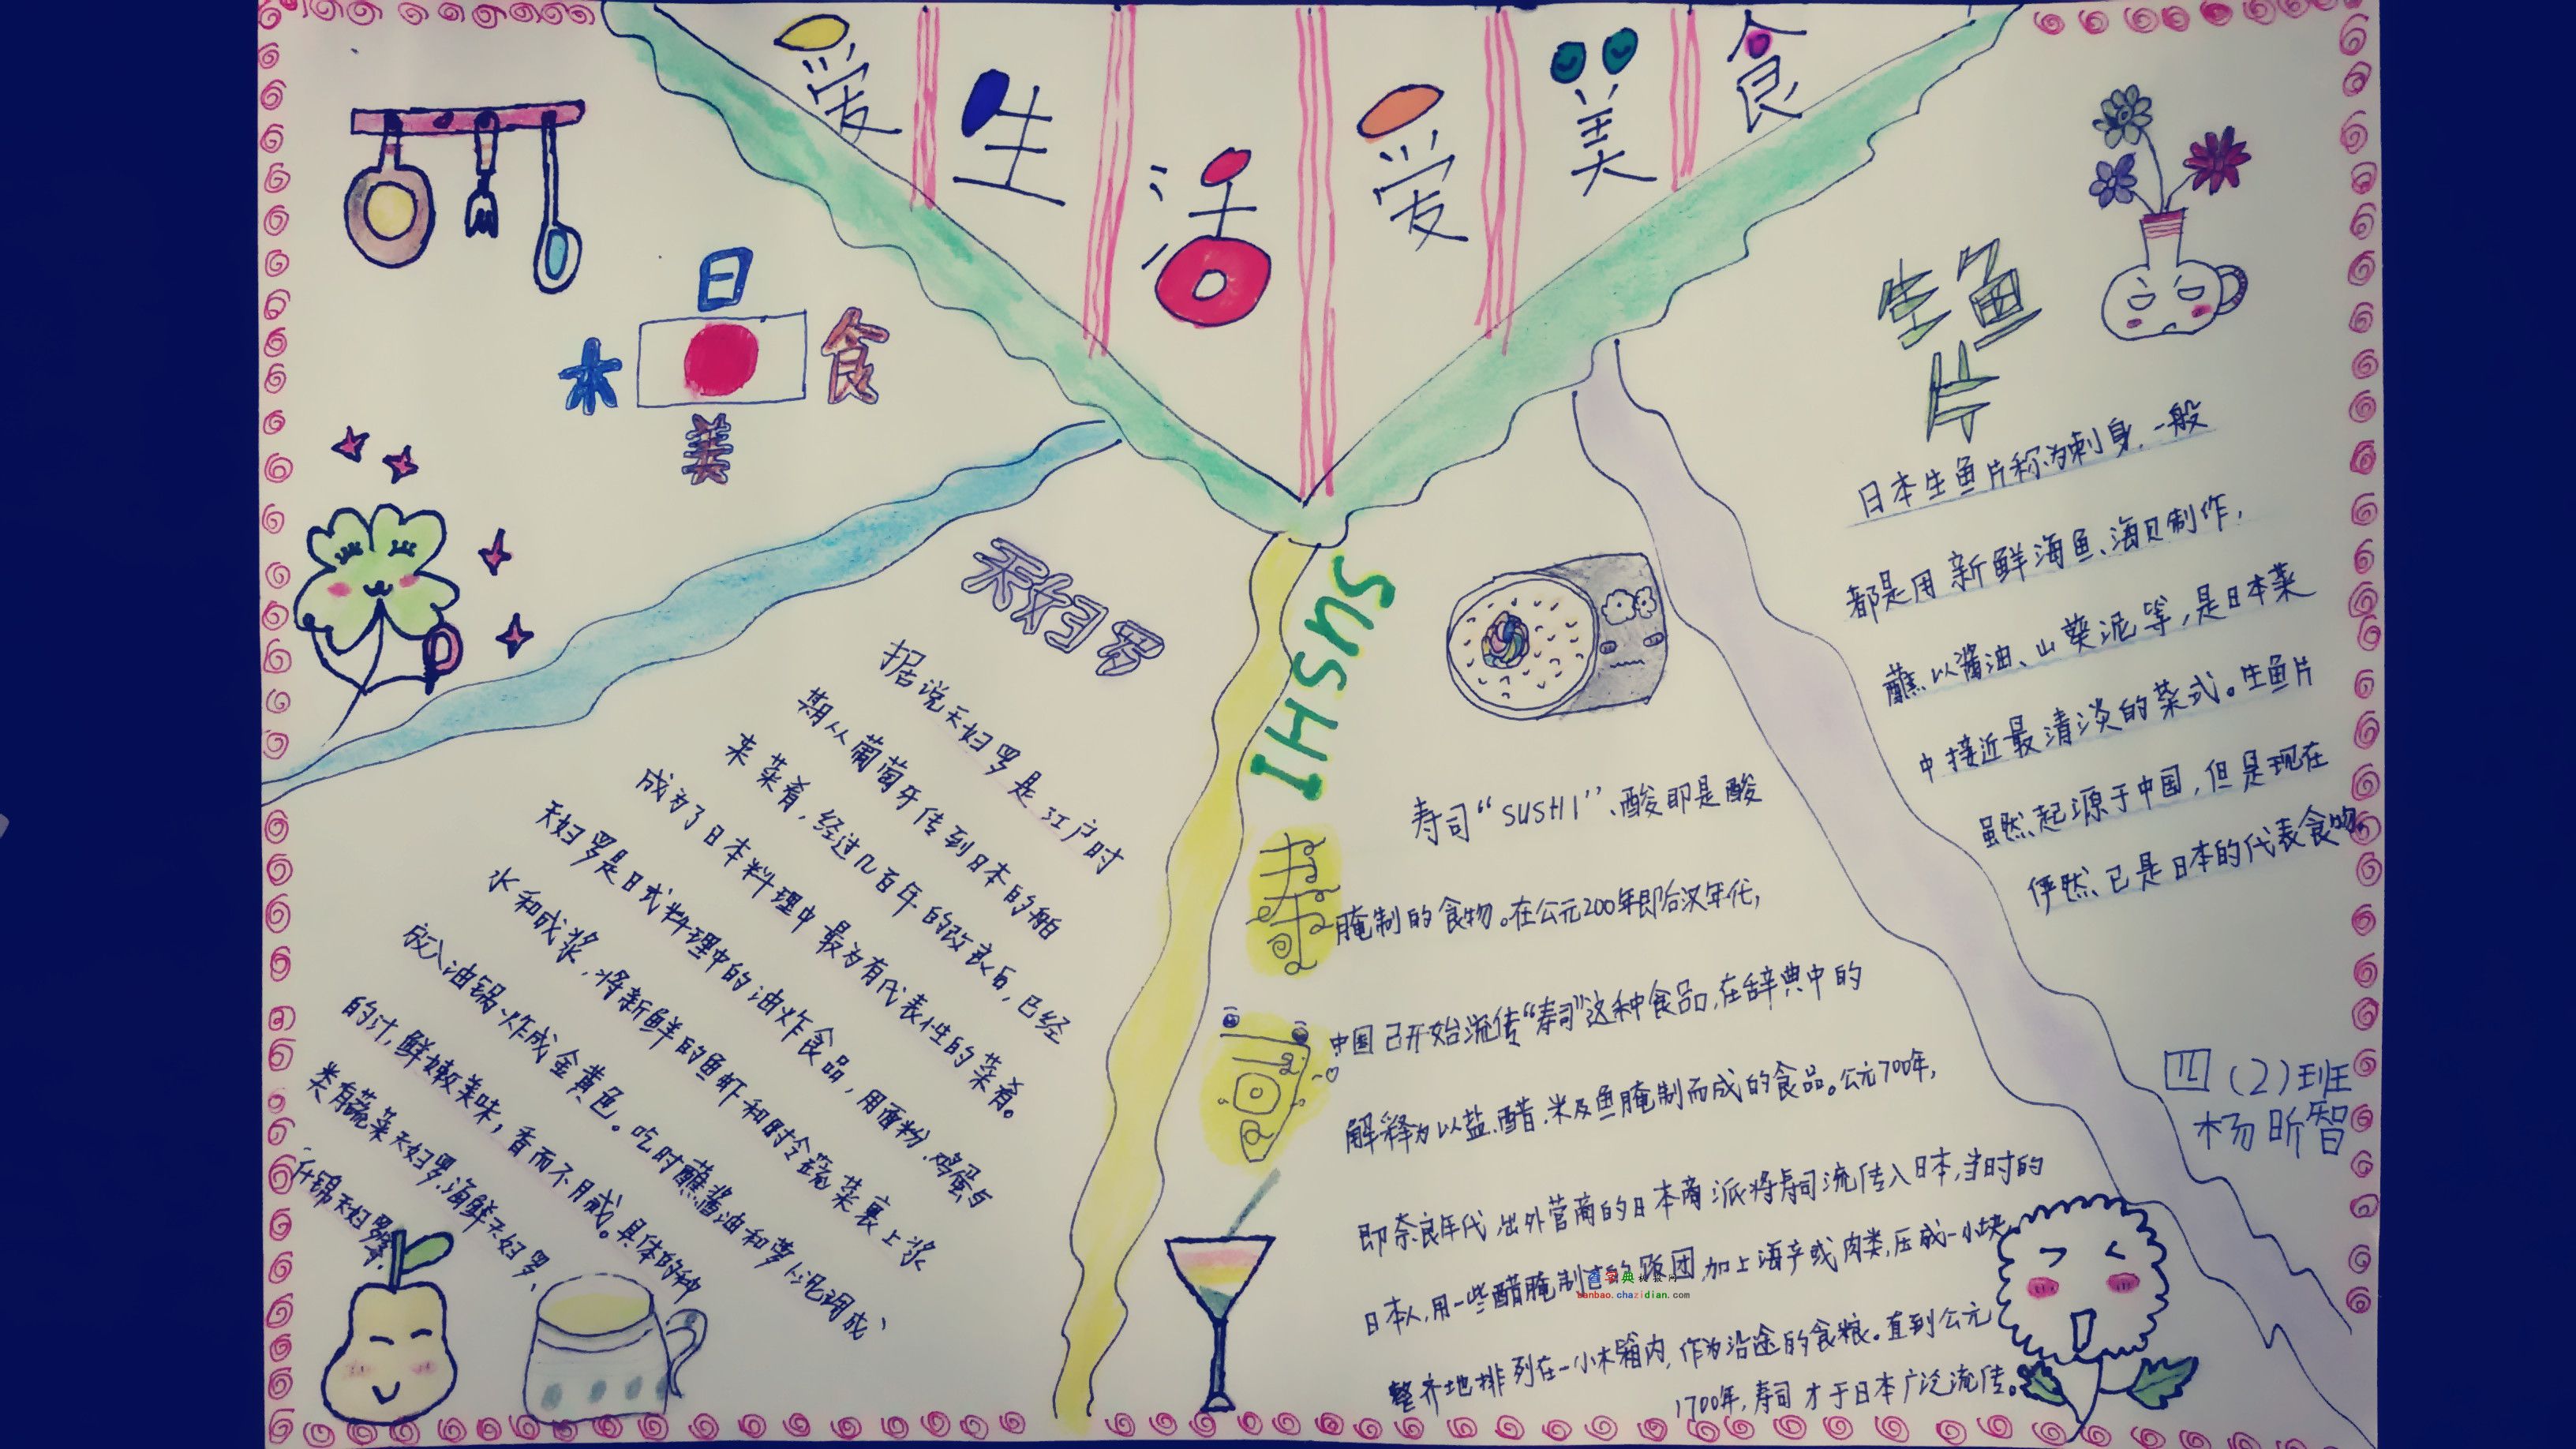 爱生活爱美食
日
本 食
美
天妇罗
据说天妇罗是江户时
期从葡萄牙传到日本的舶
来菜肴，经过几百年的改良后，已经
成为了日本料理中最为有代表性的菜肴。
天妇罗是日式料理中的油炸食品，用面粉、鸡蛋与
水和成浆，将新鲜的鱼虾和时令蔬菜裹上浆
放入油锅炸成金黄色。吃时蘸酱油和萝卜泥调成
的汁，鲜嫩美味，香而不腻。具体的种
类有蔬菜天妇罗、海鲜天妇罗、
什锦天妇罗等。
SUSHI
寿司
寿司“SUSHI”、酸即是酸
腌制的食物。在公元200年即后汉年代，
中国已开始流传“寿司”这种食品，在辞典中的
解释为以盐、醋、米及鱼腌制而成的食品。公元700年，
即奈良年代 出外营商的日本商派将寿司流传入日本，当时的
日本人，用一些醋腌制过的饭团，加上海产或肉类，压成一小块，
整齐地排列在一小木箱内，作为沿途的食粮。直到公元
1700年，寿司才于日本广泛流传。
生鱼
片
日本生鱼片称为刺身，一般
都是用新鲜海鱼、海贝制作，
蘸以酱油、山葵泥等，是日本菜
中接近最清淡的菜式。生鱼片
虽然起源于中国，但是现在
俨然已是日本的代表食物。
四（2）班
杨昕智
banbao.chazidian.com